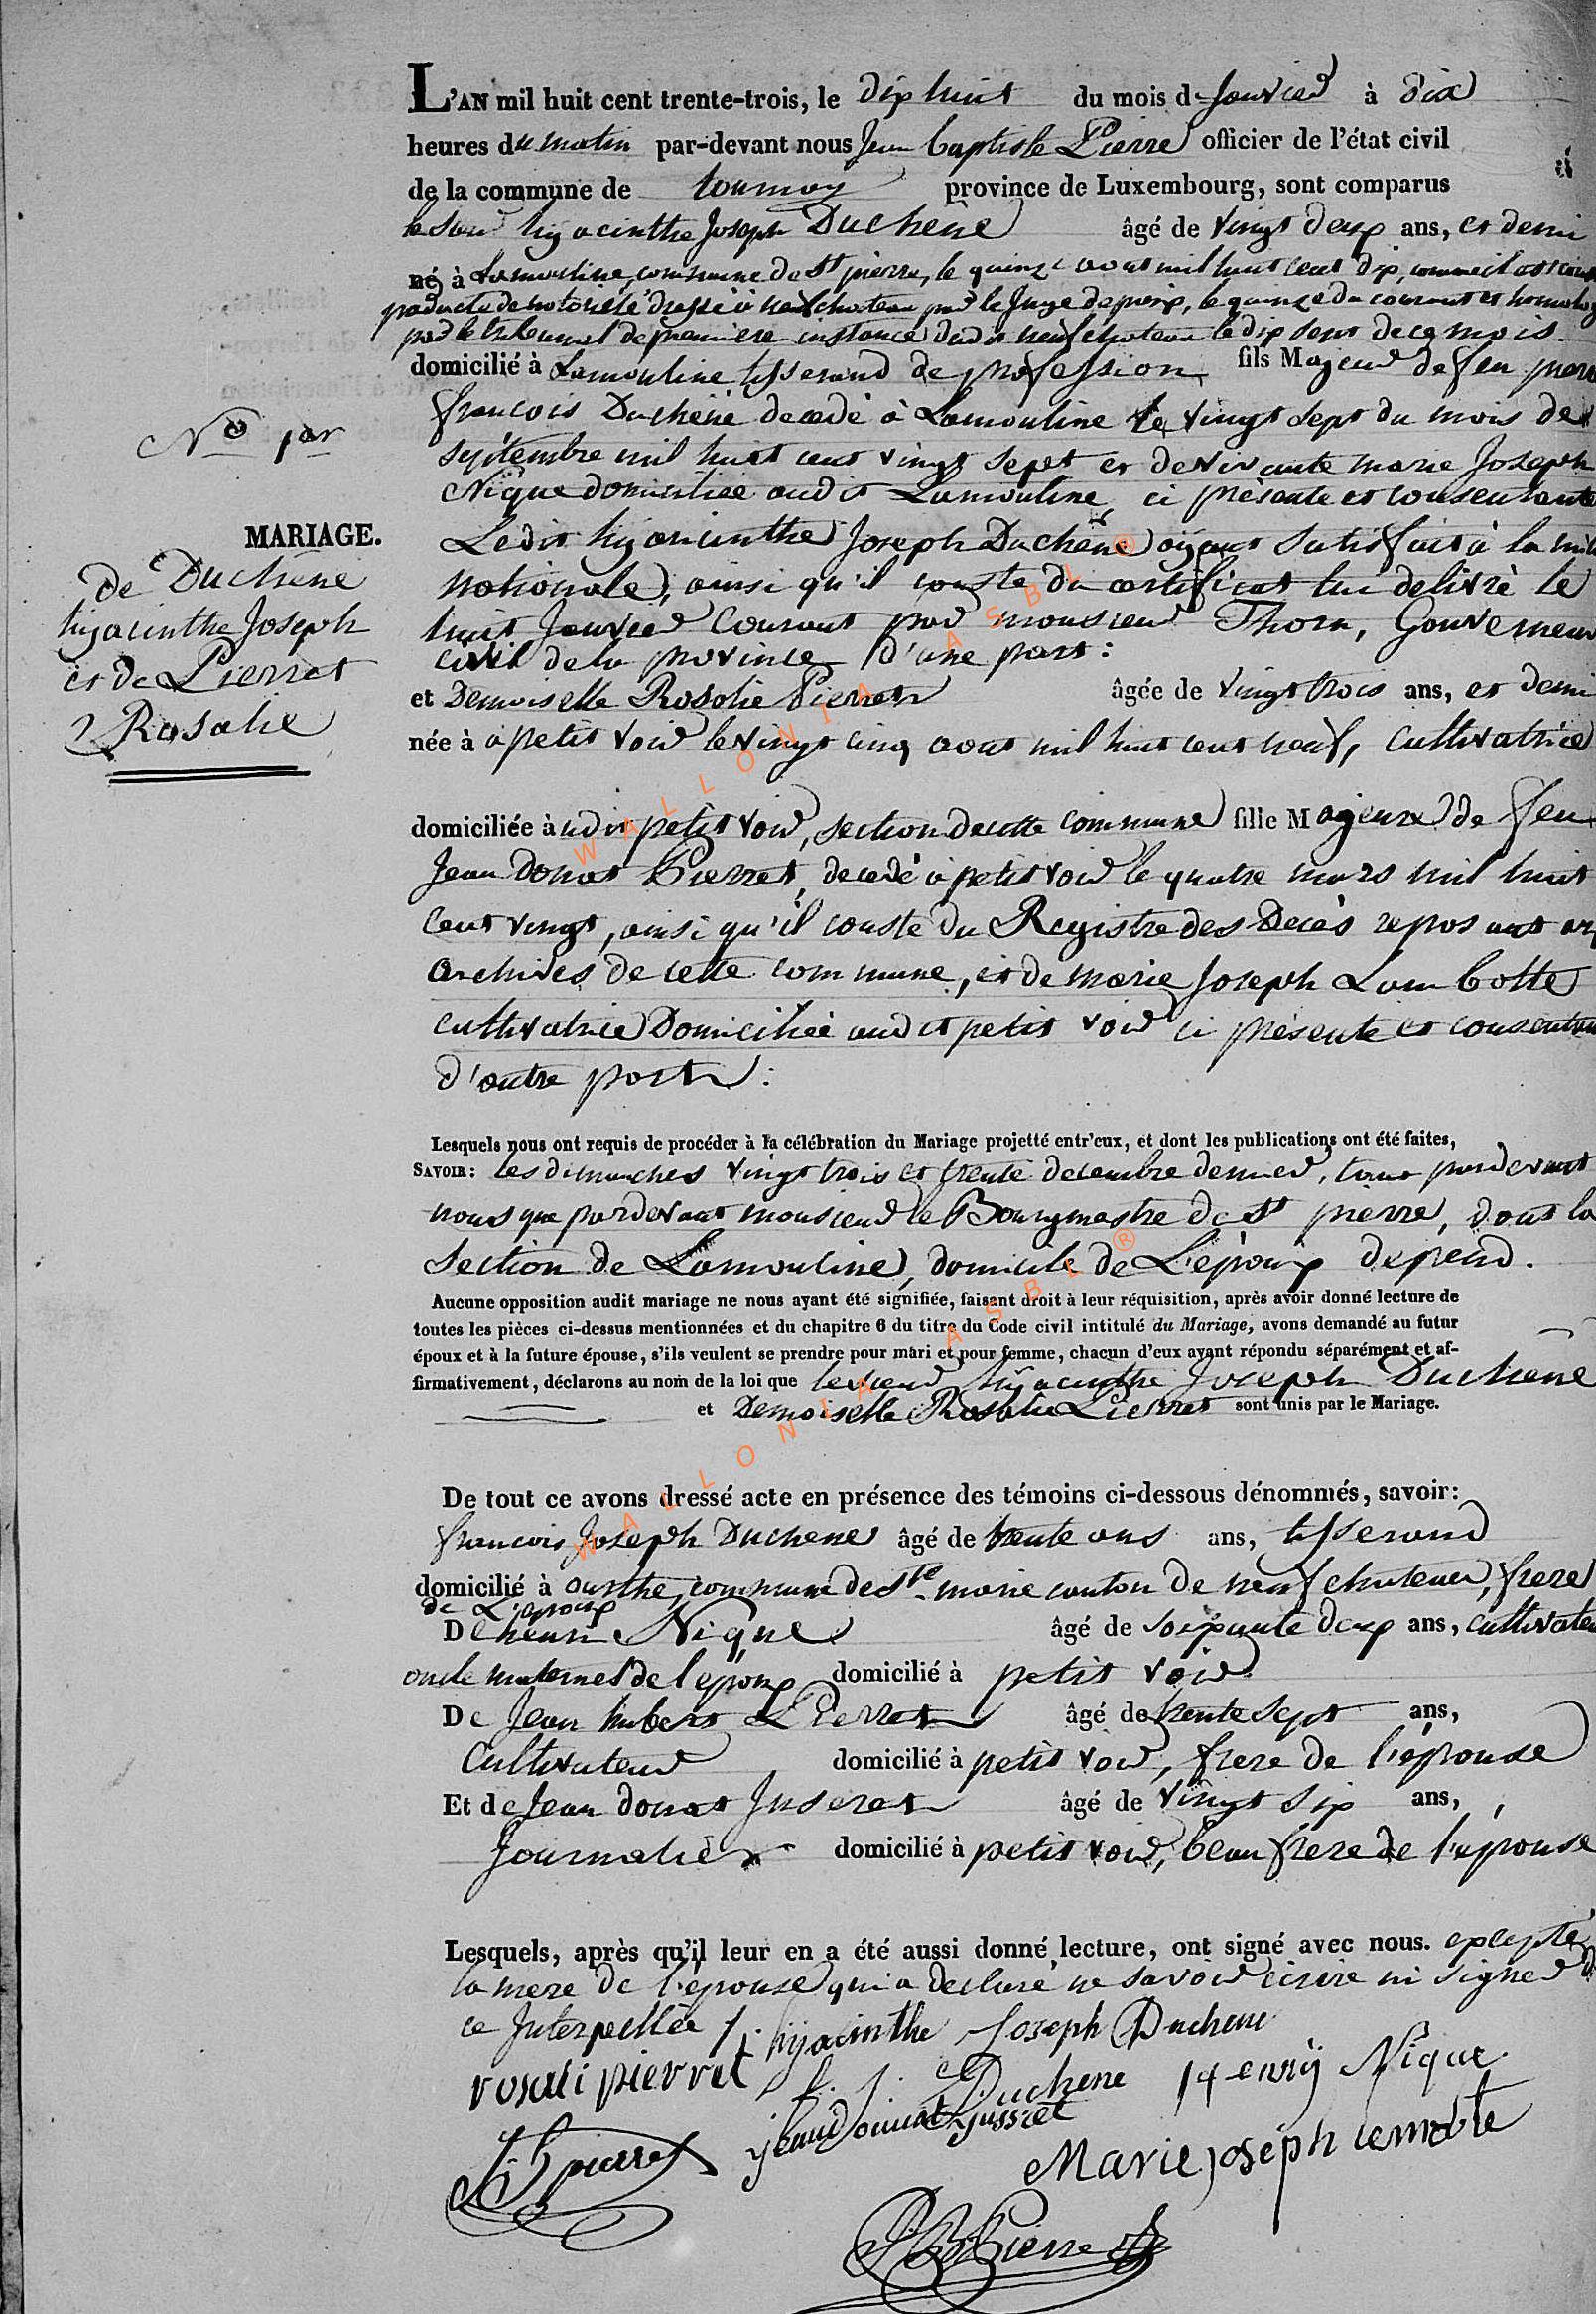 L'AN mil huit cent trente-trois, le dix huit du mois de Janvier à dix
heures du matin par-devant nous Jean baptiste Pierre officier de l'état civil
de la commune de tournay province de Luxembourg, sont comparus
le Sieur hyacinthe Joseph Duchène âgé de vingt deux ans, et demi
né à Lamouline, commune de St pierre, le quinze aout mil huit cent dix, comme il est
par acte de notoriété dressé à neufchateau par le Juge de paix, le quinze du courant et homolog
par le tribunal de première instance dudit neufchateau le dix sept de ce mois
domicilié à Lamouline tisserand de profession, fils Majeur de feu
françois Duchène decedé à Lamouline le vingt sept du mois de
septembre mil huit cent vingt sept et de vivante marie Joseph
Nique domiciliée audit Lamouline, ci présente et consentante
Ledit hyacinthe Joseph Duchène ayant satisfait à la mili
nationale, ainsi qu'il conste du certificat lui délivré le
huit Janvier courant par monsieur Thorn, Gouverneur
civil de la province d'une part:
N° 1er
MARIAGE.
de Duchène
hyacinthe Joseph
et de Pierret
Rosalie
et Demoiselle Rosalie Pierret âgée de vingt trois ans, et demi
née à a petit voir le vingt cinq aout mil huit cent neuf, cultivatrice
domiciliée à udit petit voir, section de cette commune fille Majeure de feu
Jean donat Pierret, decedé à petit voir le quatre mars mil huit
cent vingt, ainsi qu'il conste du Registre des Decès reposant aux
archives de cette commune, et de marie Joseph Lambotte
cultivatrice Domiciliée audit petit voir ci présente et consentan
d'autre part:
Lesquels nous ont requis de procéder à la célébration du Mariage projetté entr'eux, et dont les publications ont été faites,
SAVOIR: les dimanches vingt trois et trente decembre dernier, tant pardevant
nous que pardevant monsieur le Bourgmestre de St pierre, dont la
section de Lamouline, domicile de L'époux depend.
Aucune opposition audit mariage ne nous ayant été signifiée, faisant droit à leur réquisition, après avoir donné lecture de
toutes les pièces ci-dessus mentionnées et du chapitre 6 du titre du Code civil intitulé du Mariage, avons demandé au futur
époux et à la future épouse, s'ils veulent se prendre pour mari et pour femme, chacun d'eux ayant répondu séparément et af-
firmativement, déclarons au nom de la loi que le sieur hyacinthe Joseph Duchène
et Demoiselle Rosalie Pierret sont unis par le Mariage.
De tout ce avons dressé acte en présence des témoins ci-dessous dénommés, savoir:
françois Joseph Duchene âgé de trente ans ans, tisserand
domicilié à ourthe, commune de Ste marie canton de neufchateau, frere
de L'époux
De henri Nique âgé de soixante deux ans, cultivateu
oncle maternel de l'époux domicilié à petit voir
De Jean hubert Pierret âgé de trente sept ans,
Cultivateur domicilié à petit voir, frere de l'épouse
Et de Jean donat Juseret âgé de vingt six ans,
Journalièr domicilié à petit voir, beau frere de l'épouse
Lesquels, après qu'il leur en a été aussi donné lecture, ont signé avec nous. excepté
la mere de l'épouse qui a declaré ne savoir écrire ni signer d
ce Interpellée /. hyacinthe Joseph Duchene
rosali pierret f. j. Duchene henry Nique
jeandonnat jusseret
J h pierret Marie joseph lemabte
J B Pierre
WALLONIA ASBL ®
WALLONIA ASBL ®